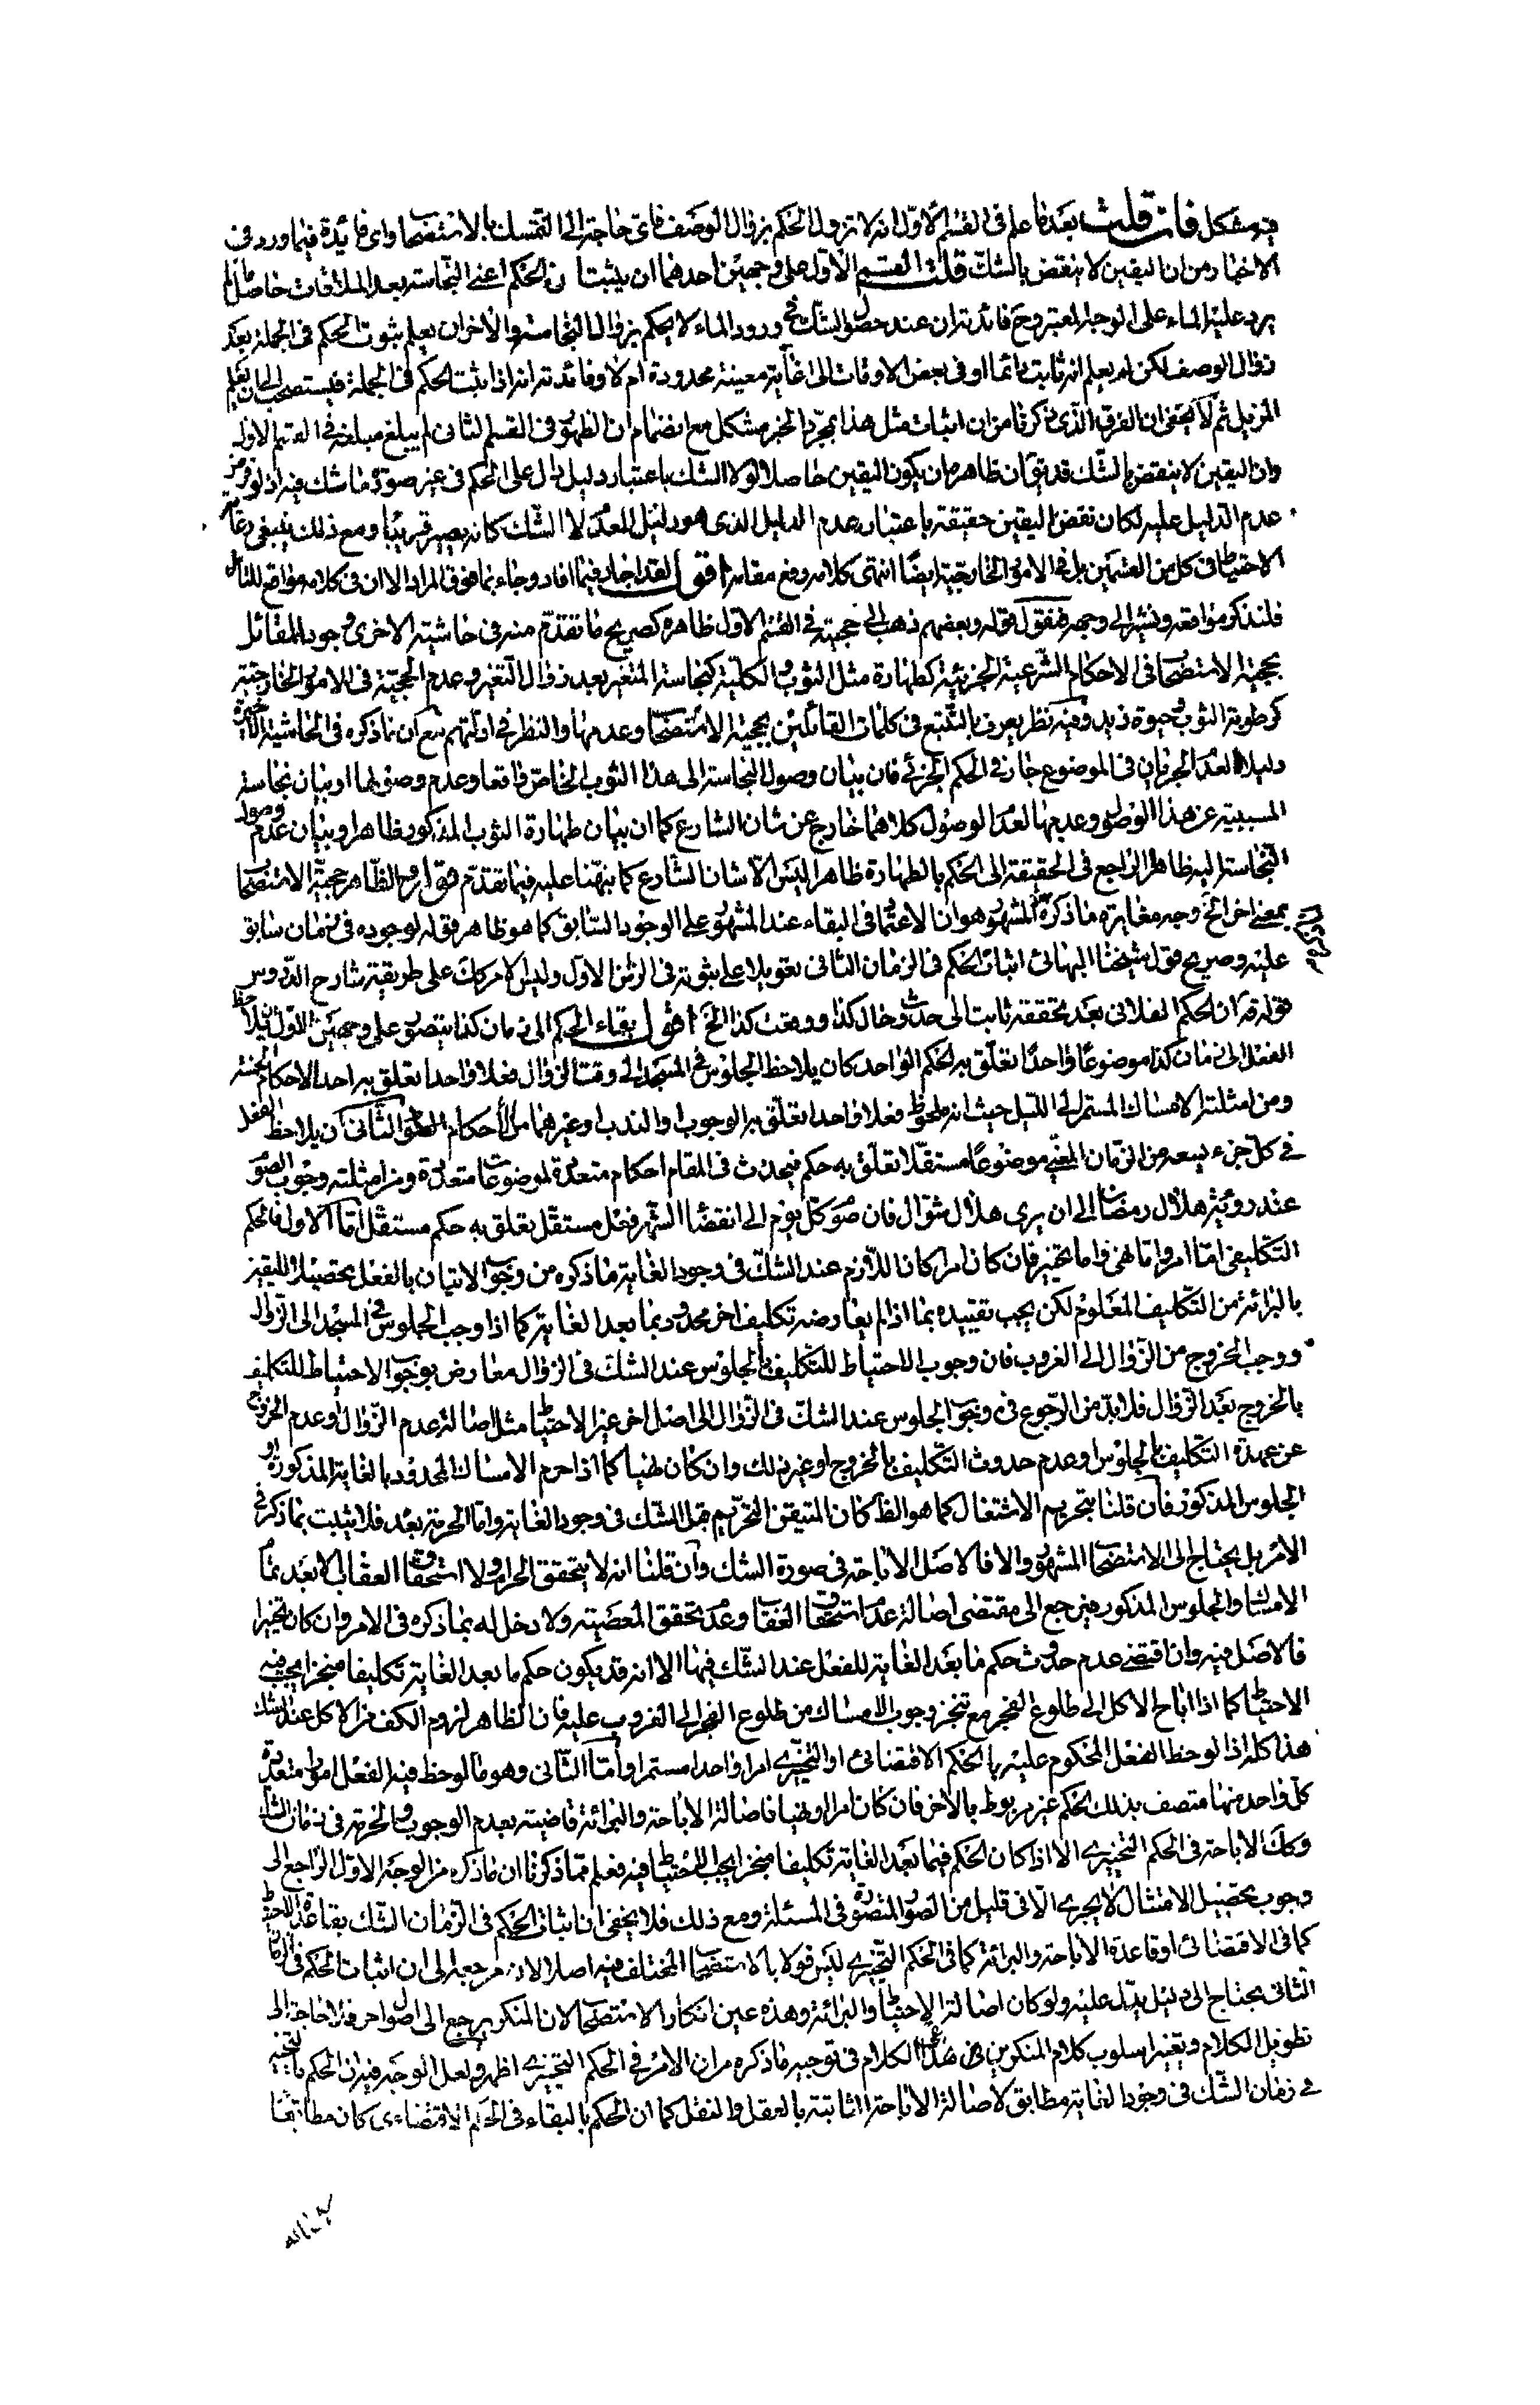 فيه مشكل فان قلت بعد ما علم في القسم الاول انه لا تزول الحكم بزوال الوصف فاى حاجة الى التمسك بالاستصحاب واى فائدة فيما ورد في
الاخبار من ان اليقين لا ينقض بالشك قلت القسم الاول على وجهين احدهما ان يثبت ان الحكم اعنى النجاسة بعد الملاقات حاصل ما لم
يرد عليه الماء على الوجه المعتبر وح فائدته ان عند حصول الشك في ورود الماء لا يحكم بزوال النجاسة والاخر ان يعلم ثبوت الحكم في الجملة بعد
زوال الوصف لكن لم يعلم انه ثابت دائما او في بعض الاوقات الى غاية معينة محدودة ام لا وفائدته انه اذا ثبت الحكم في الجملة فيستصحب الى ان يعلم
المزيل ثم لا يخفى ان الفرق الذى ذكرنا من ان اثبات مثل هذا بمجرد الخبر مشكل مع انضمام ان الظهور في القسم الثانى لم يبلغ مبلغه في القسم الاول
وان اليقين لا ينقض بالشك قد يق ان ظاهره ان يكون اليقين حاصلا لولا الشك باعتبار دليل دال على الحكم في غير صورة ما شك فيه اذ لو فرض
عدم الدليل عليه لكان نقض اليقين حقيقة باعتبار عدم الدليل الذى هو دليل العدم لا الشك كانه يصير قريبا ومع ذلك ينبغي رعاية
الاحتياط في كل من القسمين بل في الامور الخارجية ايضا انتهى كلامه رفع مقامه اقول لقد اجاد فيما افاد وجاء بما فوق المراد الا ان في كلامه مواقع للتأمل
فلنذكر مواقعه ونشير الى وجهه فنقول قوله وبعضهم ذهب الى حجيته في القسم الاول ظاهره كصريح ما تقدم منه في حاشيته الاخرى وجود القائل
بحجية الاستصحاب في الاحكام الشرعية الجزئية كطهارة مثل الثوب والكلية كنجاسة المتغير بعد زوال التغير وعدم الحجية في الامور الخارجية
كرطوبة الثوب وحيوة زيد وفيه نظر يعرف بالتتبع في كلمات القائلين بحجية الاستصحاب وعدمها والنظر في ادلتهم مع ان ما ذكره في الحاشية الاخيرة
دليلا لعدم الجريان في الموضوع جار في الحكم الجزئي فان بيان وصول النجاسة الى هذا الثوب الخاص واقعا وعدم وصولها او بيان نجاسته
المسببية عن هذا الوصول وعدمها لعدم الوصول كلاهما خارج عن شان الشارع كما ان بيان طهارة الثوب المذكور ظاهرا وبيان عدم وصول
النجاسة اليه ظاهرا الراجع في الحقيقة الى الحكم بالطهارة ظاهرا ليس الا شان الشارع كما نبهنا عليه فيما تقدم قوله والظاهر حجية الاستصحاب
بمعنى اخر الخ وجه مغايرة ما ذكره المشهور هو ان الاعتماد في البقاء عند المشهور على الوجود السابق كما هو ظاهر قوله لوجوده في زمان سابق
عليه وصريح قول شيخنا البهائى اثبات الحكم في الزمان الثانى تعويلا على ثبوته في الزمن الاول وليس الامر كك على طريقة شارح الدروس
قوله قه ان الحكم الفلانى بعد تحققه ثابت الى حدوث حال كذا او وقت كذا الخ اقول بقاء الحكم الى زمان كذا يتصور على وجهين الاول ان يلاحظ
الفعل الى زمان كذا موضوعا واحدا تعلق به الحكم الواحد كان يلاحظ الجلوس في المسجد الى وقت الزوال فعلا واحدا تعلق به احد الاحكام الخمسة
ومن امثلته الامساك المستمر الى الليل حيث انه ملحوظ فعلا واحدا تعلق به الوجوب او الندب او غيرهما من الأحكام الثانى ان يلاحظ الفعل
في كل جزء يسعه من الزمان المغيى موضوعا مستقلا تعلق به حكم فيحدث في المقام احكام متعددة لموضوعات متعددة ومن امثلته وجوب الصوم
عند رؤية هلال رمضان الى ان يرى هلال شوال فان صوم كل يوم الى انقضاء الشهر فعل مستقل تعلق به حكم مستقل اما الاول فالحكم
التكليفى اما امر واما نهى واما تخيير فان كان امرا كان اللازم عند الشك في وجود الغاية ما ذكره من وجوب الاتيان بالفعل تحصيلا لليقين
بالبرائة من التكليف المعلوم لكن يجب تقييده بما اذا لم يعارضه تكليف اخر محدود بما بعد الغاية كما اذا وجب الجلوس في المسجد الى الزوال
ووجب الخروج من الزوال الى الغروب فان وجوب الاحتياط للتكليف بالجلوس عند الشك في الزوال معارض بوجوب الاحتياط للتكليف
بالخروج بعد الزوال فلا بد من الرجوع في وجوب الجلوس عند الشك في الزوال الى اصل اخر غير الاحتياط مثل اصالة عدم الزوال او عدم الخروج
عن عهدة التكليف بالجلوس او عدم حدوث التكليف بالخروج او غير ذلك وان كان نهيا كما اذا حرم الامساك المحدود بالغاية المذكورة او
الجلوس المذكور فان قلنا بتحريم الاشتغال كما هو الظ كان المتيقن التحريم قبل الشك في وجود الغاية واما الحرمة بعده فلا يثبت بما ذكر في
الامر بل يحتاج الى الاستصحاب المشهور والا فالاصل الاباحة في صورة الشك وان قلنا انه لا يتحقق الحرام ولا استحقاق العقاب الا بعد تمام
الامساك والجلوس المذكورين فيرجع الى مقتضى اصالة عدم استحقاق العقاب وعدم تحقق المعصية ولا دخل له بما ذكره في الامر وان كان تخييرا
فالاصل فيه وان اقتضى عدم حدوث حكم ما بعد الغاية للفعل عند الشك فيها الا انه قد يكون حكم ما بعد الغاية تكليفا منجزا يجب فيه
الاحتياط كما اذا اباح الاكل الى طلوع الفجر مع تنجز وجوب الامساك من طلوع الفجر الى الغروب عليه فان الظاهر لزوم الكف من الاكل عند الشك
هذا كله اذا لوحظ الفعل المحكوم عليه بالحكم الاقتضائى او التخييرى امرا واحدا مستمرا واما الثانى وهو ما لوحظ فيه الفعل امورا متعددة
كل واحد منها متصف بذلك الحكم غير مربوط بالاخر فان كان امرا او نهيا فاصالة الاباحة والبرائة قاضية بعدم الوجوب والحرمة في زمان الشك
وكك الاباحة في الحكم التخييرى الا اذا كان الحكم فيما بعد الغاية تكليفا منجزا يجب الاحتياط فيه فعلم مما ذكرنا ان ما ذكره من الوجه الاول الراجع الى
وجوب تحصيل الامتثال لا يجرى الا في قليل من الصور المتصورة في المسئلة ومع ذلك فلا يخفى ان اثبات الحكم في الزمان الشك بقاعدة الاحتياط
كما في الاقتضائى او قاعدة الاباحة والبرائة كما في الحكم التخييرى ليس قولا بالاستصحاب المختلف فيه اصلا لان مرجعه الى ان اثبات الحكم في الزمان
الثانى يحتاج الى دليل يدل عليه ولو كان اصالة الاحتياط والبرائة وهذه عين انكار الاستصحاب لان المنكر يرجع الى اصول اخر فلا حاجة الى
تطويل الكلام وتغيير اسلوب كلام المنكرين في هذا الكلام في توجيه ما ذكره من ان الامر في الحكم التخييرى اظهر ولعل الوجه فيه ان الحكم بالتخيير
في زمان الشك في وجود الغاية مطابق لاصالة الاباحة الثابتة بالعقل والنقل كما ان الحكم بالبقاء في الحكم الاقتضاءى كان مطابقا